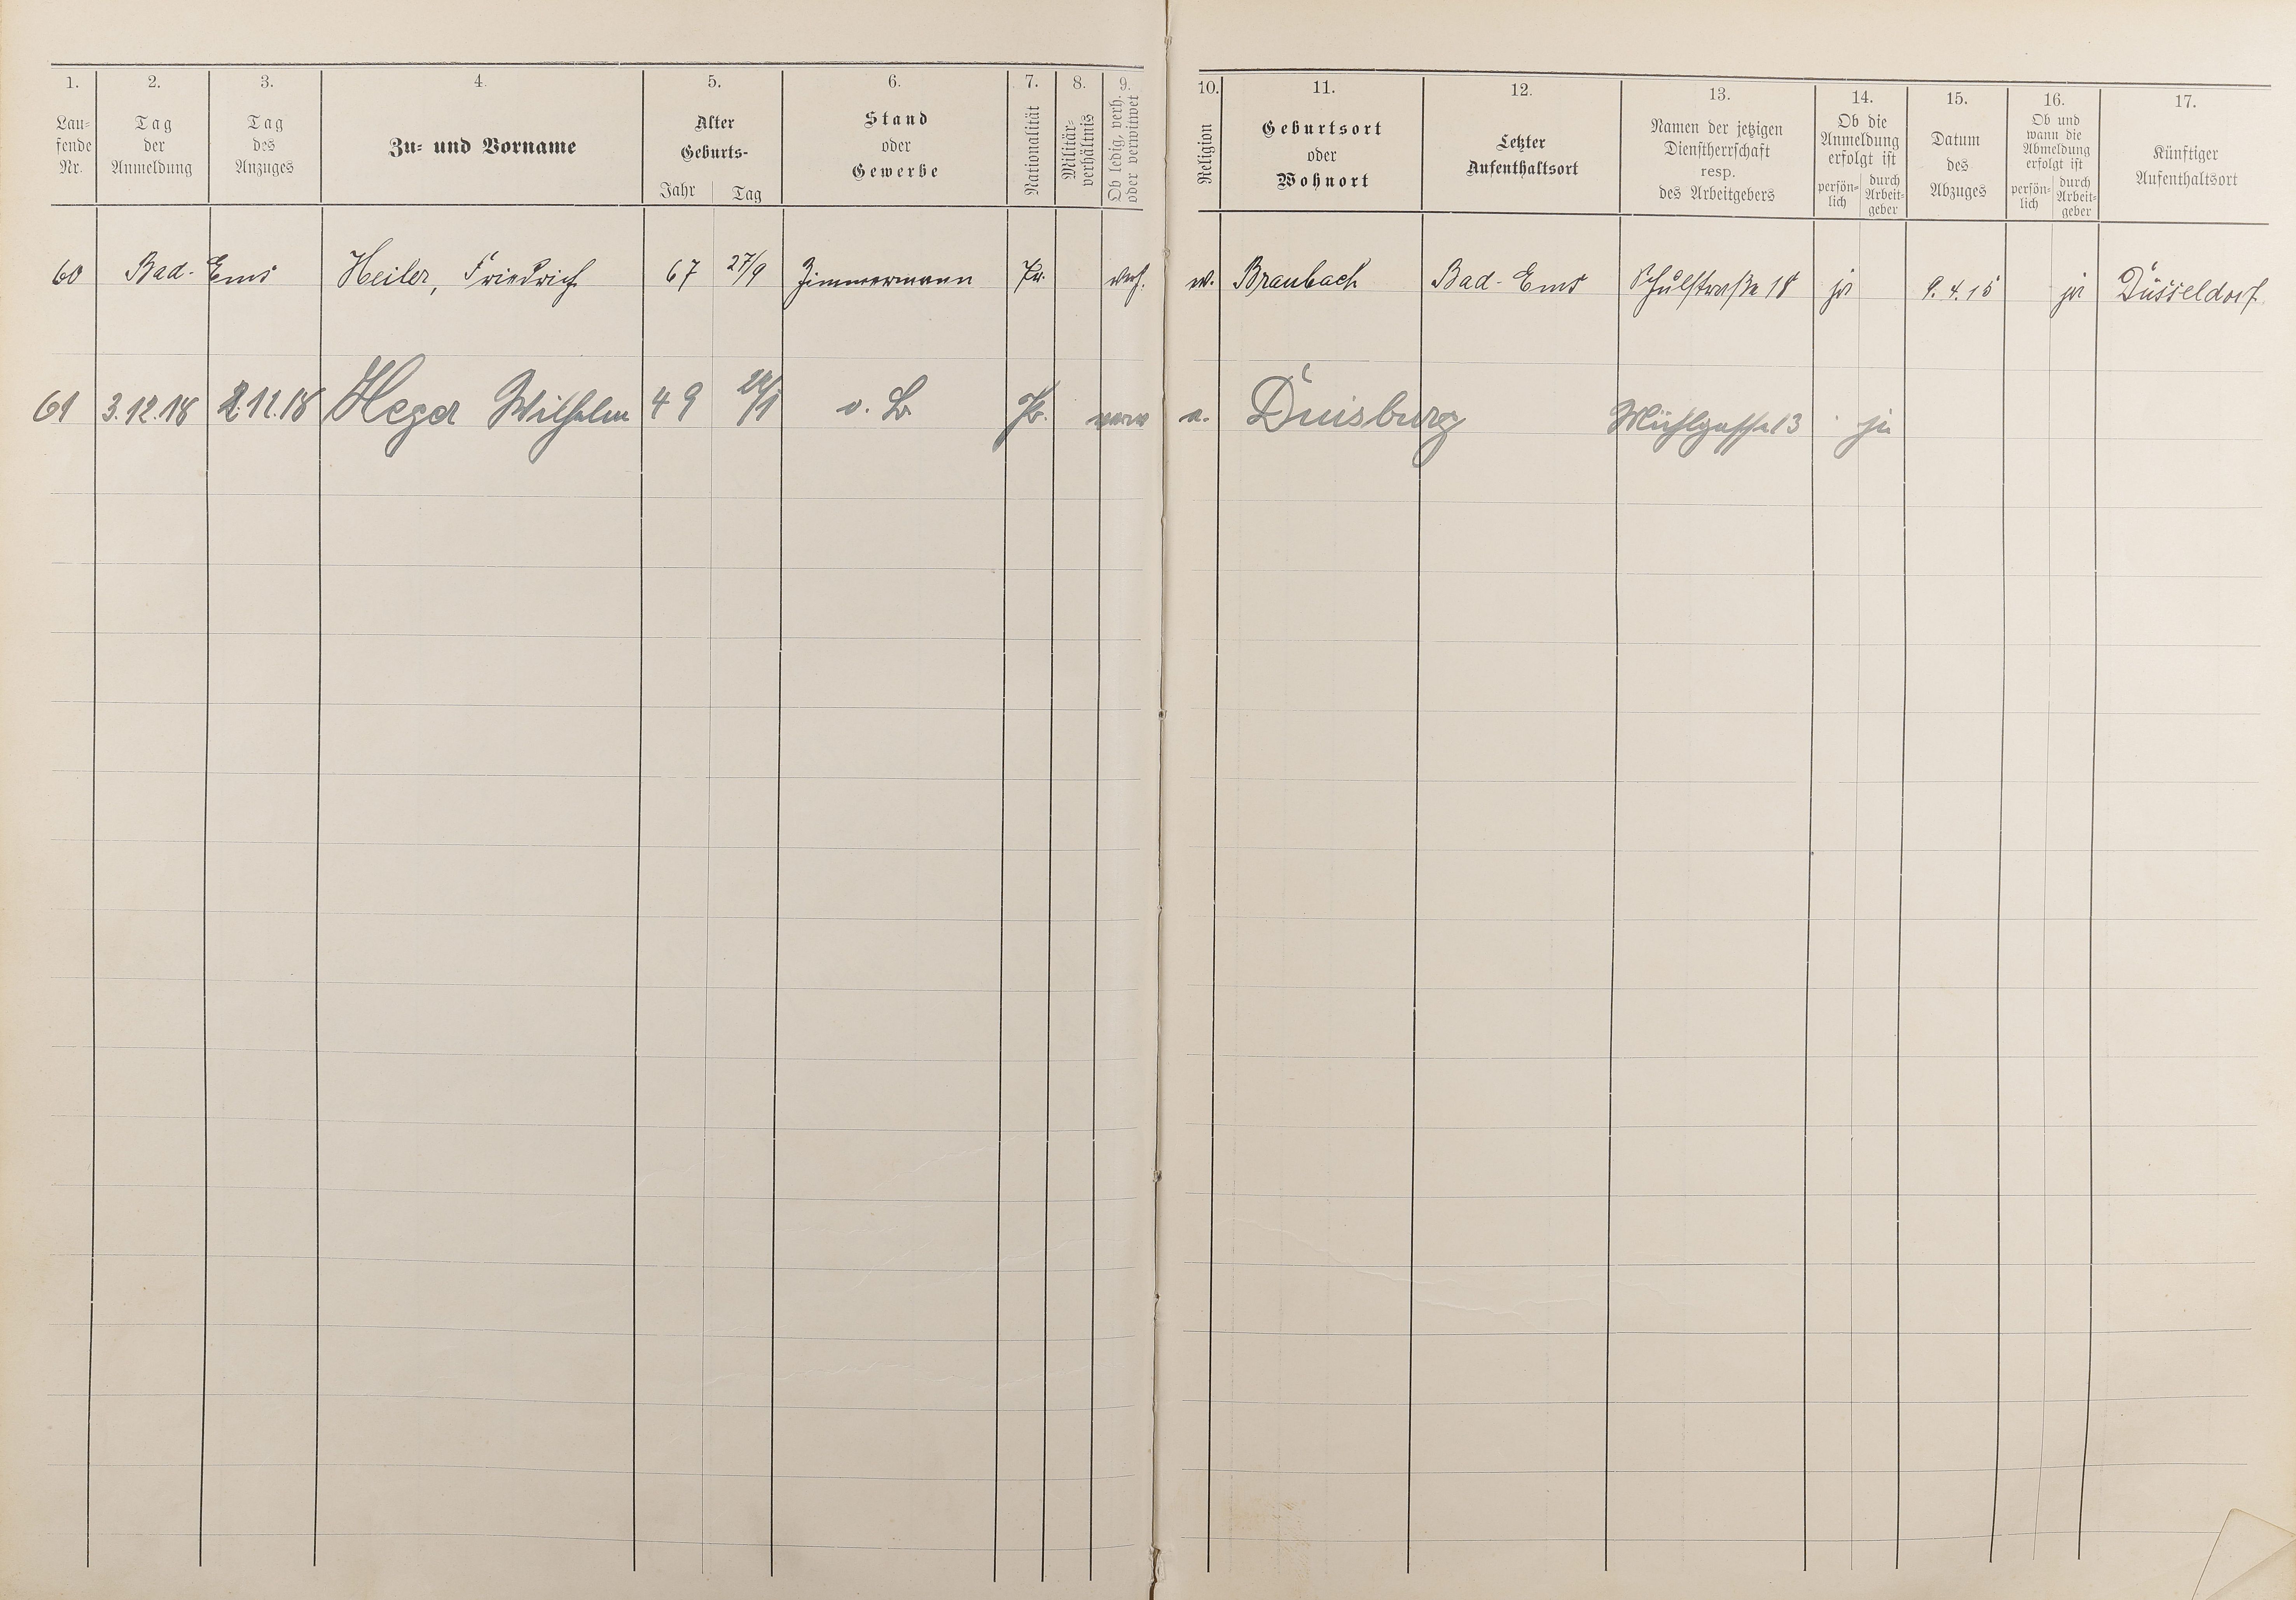 1. 2. 3. 4. 5. 6. 7. 8. 9. 10. 11. 12. 13. 14. 15. 16. 17.
Lau-
fende
Nr.
Tag
der
Anmeldung
Tag
des
Anzuges
Zu- und Vorname
Alter
Geburts-
Jahr Tag
Stand
oder
Gewerbe
Nationalität
Militär-
verhältnis
Ob ledig, verh.
oder verwitwet
Religion
Geburtsort
oder
Wohnort
Letzter
Aufenthaltsort
Namen der jetzigen
Dienstherrschaft
resp.
des Arbeitgebers
Ob die
Anmeldung
erfolgt ist
persön-
lich
durch
Arbeit-
geber
Datum
des
Abzuges
Ob und
wann die
Abmeldung
erfolgt ist
persön-
lich
durch
Arbeit-
geber
Künftiger
Aufenthaltsort
60 Bad-Ems Heiler, Friedrich 67 27/9 Zimmermann Pr. verh. Braubach Bad-Ems Schulstraße 18 ja 9.4.15 ja Düsseldorf
61 3.12.18 2.12.18 Heger Wilhelm 49 o. B. Pr. verw Duisburg Mühlgasse 13 ja